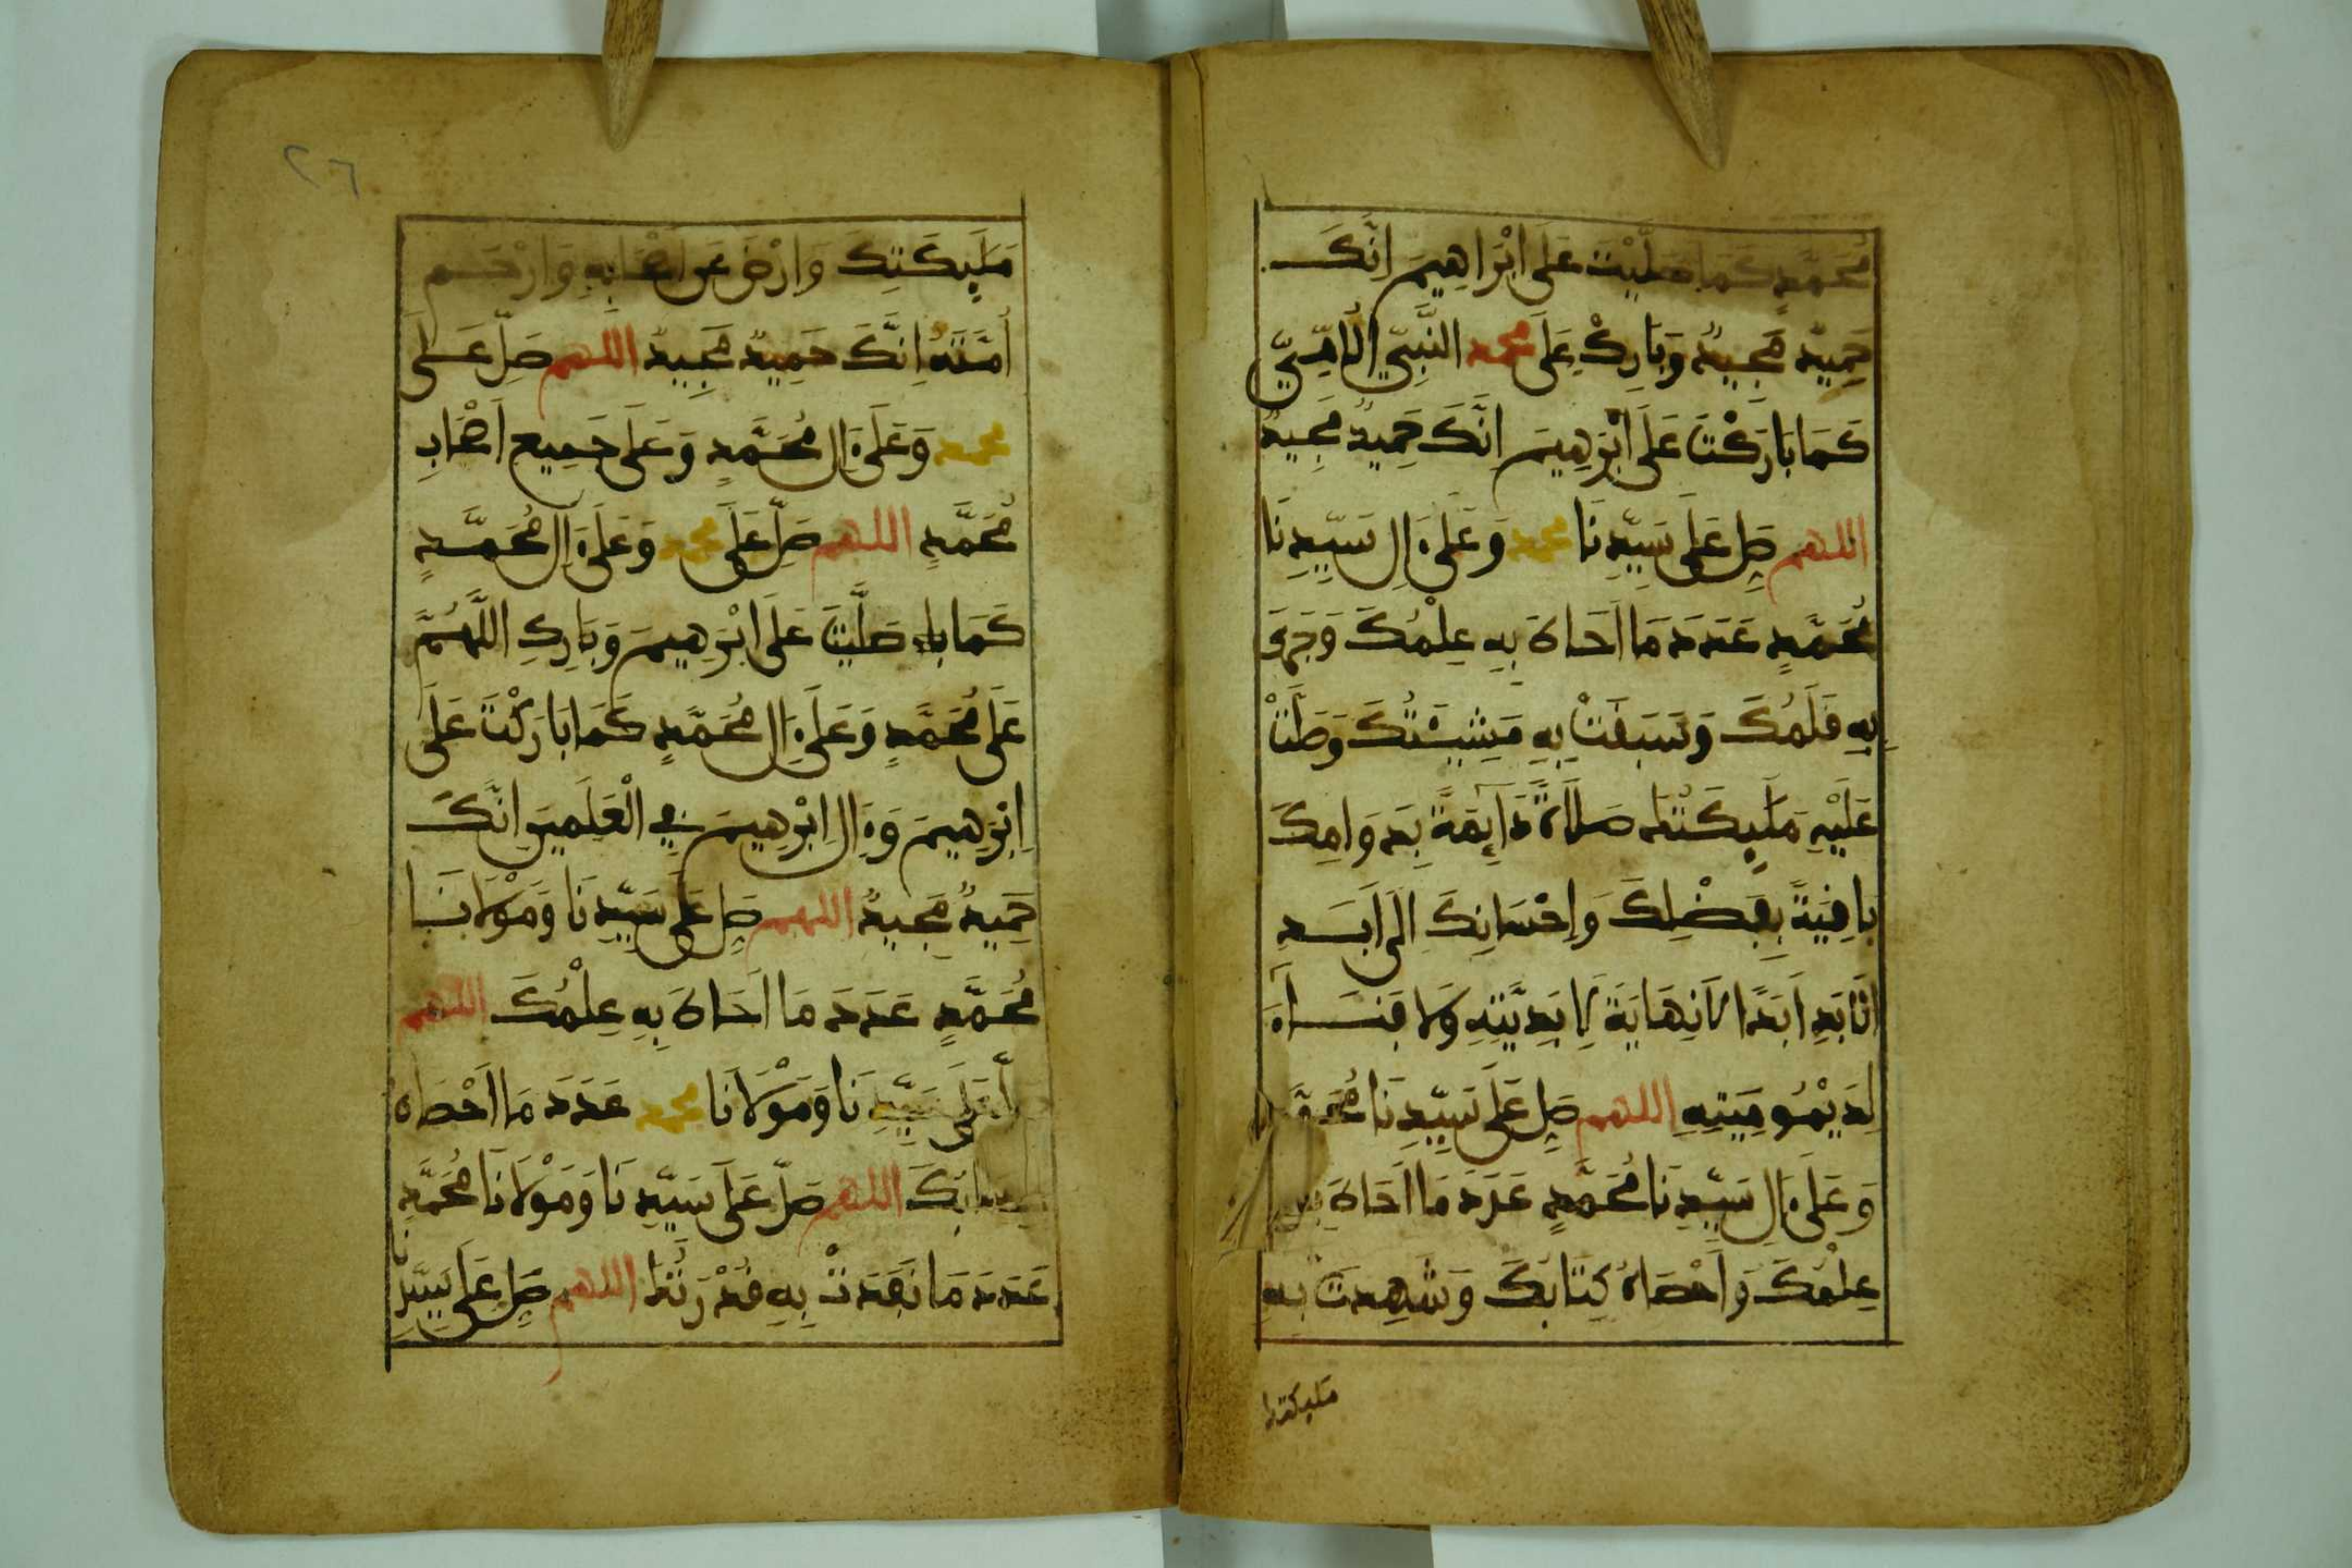 مُحَمَّدٍ كَمَا صَلَّيْتَ عَلَى ابْرَاهِيمَ انَّكَ
حَمِيدٌ مَجِيدٌ وَبَارِكْ عَلَى محمد النَّبِيِّ الْأُمِّيِّ
كَمَا بَارَكْتَ عَلَى ابْرَهِيمَ انَّكَ حَمِيدٌ مَجِيدٌ
اللهم صَلِّ عَلَى سَيِّدِنَا محمد وَعَلَى ءَالِ سَيِّدِنَا
مُحَمَّدٍ عَدَدَ مَا أَحَاطَ بِهِ عِلْمُكَ وَجَرَى
بِهِ قَلَمُكَ وَسَبَقَتْ بِهِ مَشِيئَتُكَ وَصَلَّتْ
عَلَيْهِ مَلَٰئِكَتُكَ صَلَاةً دَآئِمَةً بِدَوَامِكَ
بَاقِيَةً بِفَضْلِكَ وَإِحْسَانِكَ الَى أَبَدِ
الْأَبَدِ أَبَدًا لَا نِهَايَةَ لِأَبَدِيَّتِهِ وَلَا فَنَآءَ
لِدَيْمُومِيَّتِهِ اللهم صَلِّ عَلَى سَيِّدِنَا مُحَمَّدٍ
وَعَلَى ءَالِ سَيِّدِنَا مُحَمَّدٍ عَدَدَ مَا أَحَاطَ بِهِ
عِلْمُكَ وَأَحْصَاهُ كِتَابُكَ وَشَهِدَتْ بِهِ
مليكتك
٢٦
مَلَٰئِكَتُكَ وَارْضَ عَنْ أَصْحَابِهِ وَارْحَمْ
أُمَّتَهُ إِنَّكَ حَمِيدٌ مَجِيدٌ اللهم صَلِّ عَلَى
محمد وَعَلَى ءَالِ مُحَمَّدٍ وَعَلَى جَمِيعِ أَصْحَابِ
مُحَمَّدٍ اللهم صَلِّ عَلَى محمد وَعَلَى ءَالِ مُحَمَّدٍ
كَمَا صَلَّيْتَ عَلَى ابْرَهِيمَ وَبَارِكِ اللَّهُمَّ
عَلَى مُحَمَّدٍ وَعَلَى ءَالِ مُحَمَّدٍ كَمَا بَارَكْتَ عَلَى
إِبْرَهِيمَ وَءَالِ إِبْرَهِيمَ فِي الْعَٰلَمِينَ إِنَّكَ
حَمِيدٌ مَجِيدٌ اللهم صَلِّ عَلَى سَيِّدِنَا وَمَوْلَانَا
مُحَمَّدٍ عَدَدَ مَا أَحَاطَ بِهِ عِلْمُكَ اللهم
صَلِّ عَلَى سَيِّدِنَا وَمَوْلَانَا محمد عَدَدَ مَا أَحْصَاهُ
كِتَابُكَ اللهم صَلِّ عَلَى سَيِّدِنَا وَمَوْلَانَا مُحَمَّدٍ
عَدَدَ مَا نَفَدَتْ بِهِ قُدْرَتُكَ اللهم صَلِّ عَلَى سَيِّدِنَا